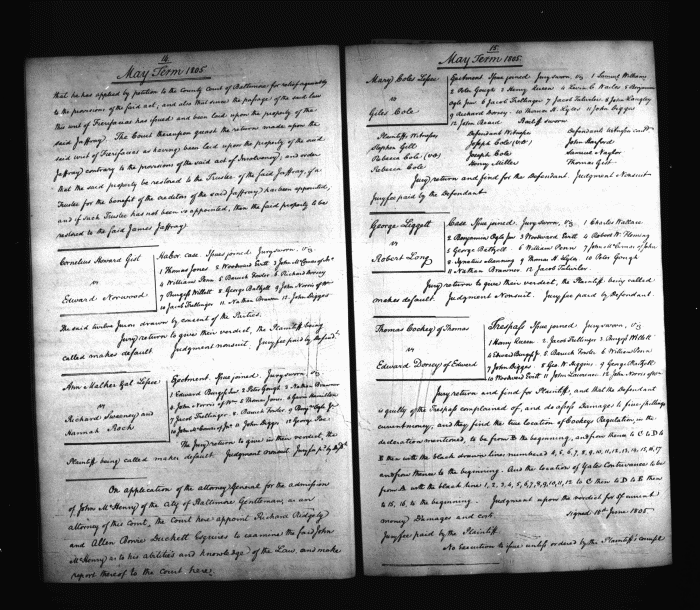 14
May Term 1805
that he has applied by petition to the County Court of Baltimore for relief agreeably
to the provisions of the said act, and also that since the passage of the said law
this writ of Fierifacias has issued and been laid upon the property of the
said Jaffray. The Court thereupon quash the return made upon the
said writ of Fierifacias as having been laid upon the property of the said
Jaffray contrary to the provisions of the said act of Insolvency, and order
that the said property be restored to the Trustee of the said Jaffray, if a
Trustee for the benefit of the creditors of the said Jaffray has been appointed,
and if such Trustee has not been so appointed, then the said property to be
restored to the said James Jaffray
Cornelius Howard Gist
vs
Edward Norwood
Habor case Issue joined. Jury sworn, viz
1 Thomas Jones 2 Woodward Evitt 3 John
4 William Penn 5 Baruch Fowler 6 Richard Dorsey
7 Burgess Willett 8 George Bathyll 9 John Norris of
10 Jacob Frellinger 11 Nathan Brawner 12 John Bigges
The said twelve Jurors drawn by consent of the Parties.
Jury return to give their verdict, the Plaintiff being
called makes default Judgment nonsuit. Jury fee paid by
Ann Lessee
vs
Richard Sweeney and
Hannah Rock
Ejectment Issue joined, Jury sworn, viz
1 Edward Burgess Junr 2 Peter Gough 3 Nathan Brawner
4 John Norris of 5 Thomas Jones 6 Hamilton
7 Jacob Frellinger 8 Baruch Fowler 9
10 John 11 John Bigges 12 George
The Jury return to give in their verdict, the
Plaintiff being called makes default Judgment nonsuit. Jury fee
On application of the attorney General for the admission
of John McHenry of the City of Baltimore Gentleman, as an
attorney of this Court, the Court here appoint Richard Ridgely
and Allen Bowie Duckett Esquires to examine the said John
McHenry as to his abilities and knowledge of the Law, and make
report thereof to the Court here.
15
May Term 1805.
Mary Coles Lessee
vs
Giles Cole
Ejectment Issue joined Jury sworn, viz 1 Samuel Williams
2 Peter Gough 3 Henry Queen 4 Levin C. Wailes 5 Benjamin
Ogle Junr 6 Jacob Frellinger 7 Jacob 8 John Langley
9 Richard Dorsey 10 Thomas H. 11 John Bigges
12 John Beard Bailiff sworn
Plaintiffs Witnesses
Stephen Gill
Rebecca Cole (VD)
Rebecca Cole
Defendant Witnesses
Joseph Cole (VD)
Joseph Cole
Henry Miller
Defendant Witnesses
John Hayford
Samuel Naylor
Thomas Gist
Jury return and find for the Defendant Judgment Nonsuit
Jury fee paid by the Defendant
George Leggett
vs
Robert Long
Case Issue joined. Jury sworn, viz 1 Charles Wallace
2 Benjamin Ogle Junr 3 Woodward Evitt 4 Robert W. Fleming
5 George Bathyll 6 William Penn 7 John of John
8 Ignatius Manning 9 Thomas H. 10 Peter Gough
11 Nathan Brawner 12 Jacob
Jury return to give their verdict, the Plaintiff being called
makes default. Judgment Nonsuit, Jury fee paid by Defendant.
Thomas Cockey of Thomas
vs
Edward Dorsey of Edward
Trespass Issue joined Jury sworn, viz
1 Henry Queen 2 Jacob Frellinger 3 Burgess Willett
4 Edward Burgess Jr. 5 Baruch Fowler 6 William Penn
7 John Bigges 8 Geo. N. Biggens 9 George Bathyll
10 Woodward Evitt 11 John Lawrence 12 John Norris of
Jury return and find for Plaintiff, and that the Defendant
is guilty of the Trespass complained of, and do assess Damages to five shillings
current money, and they find the true location of Cockey Regulation, in the
declaration mentioned, to be from B the beginning, and from thence to C to D to
E then with the black drawn lines numbered 4, 5, 6, 7, 8, 9, 10, 11, 12, 13, 14, 15, 16, 17
and from thence to the beginning. And the location of Yates Contrivance to be
from A with the black lines 1, 2, 3, 4, 5, 6, 7, 8, 9, 10, 11, 12 to C then to D to E then
to 15, 16, to the beginning. Judgment upon the verdict for 5/ current
money Damages and costs. Signed 18th June 1805
Jury fee paid by the Plaintiff
No Execution to issue unless ordered by the Plaintiffs counsel